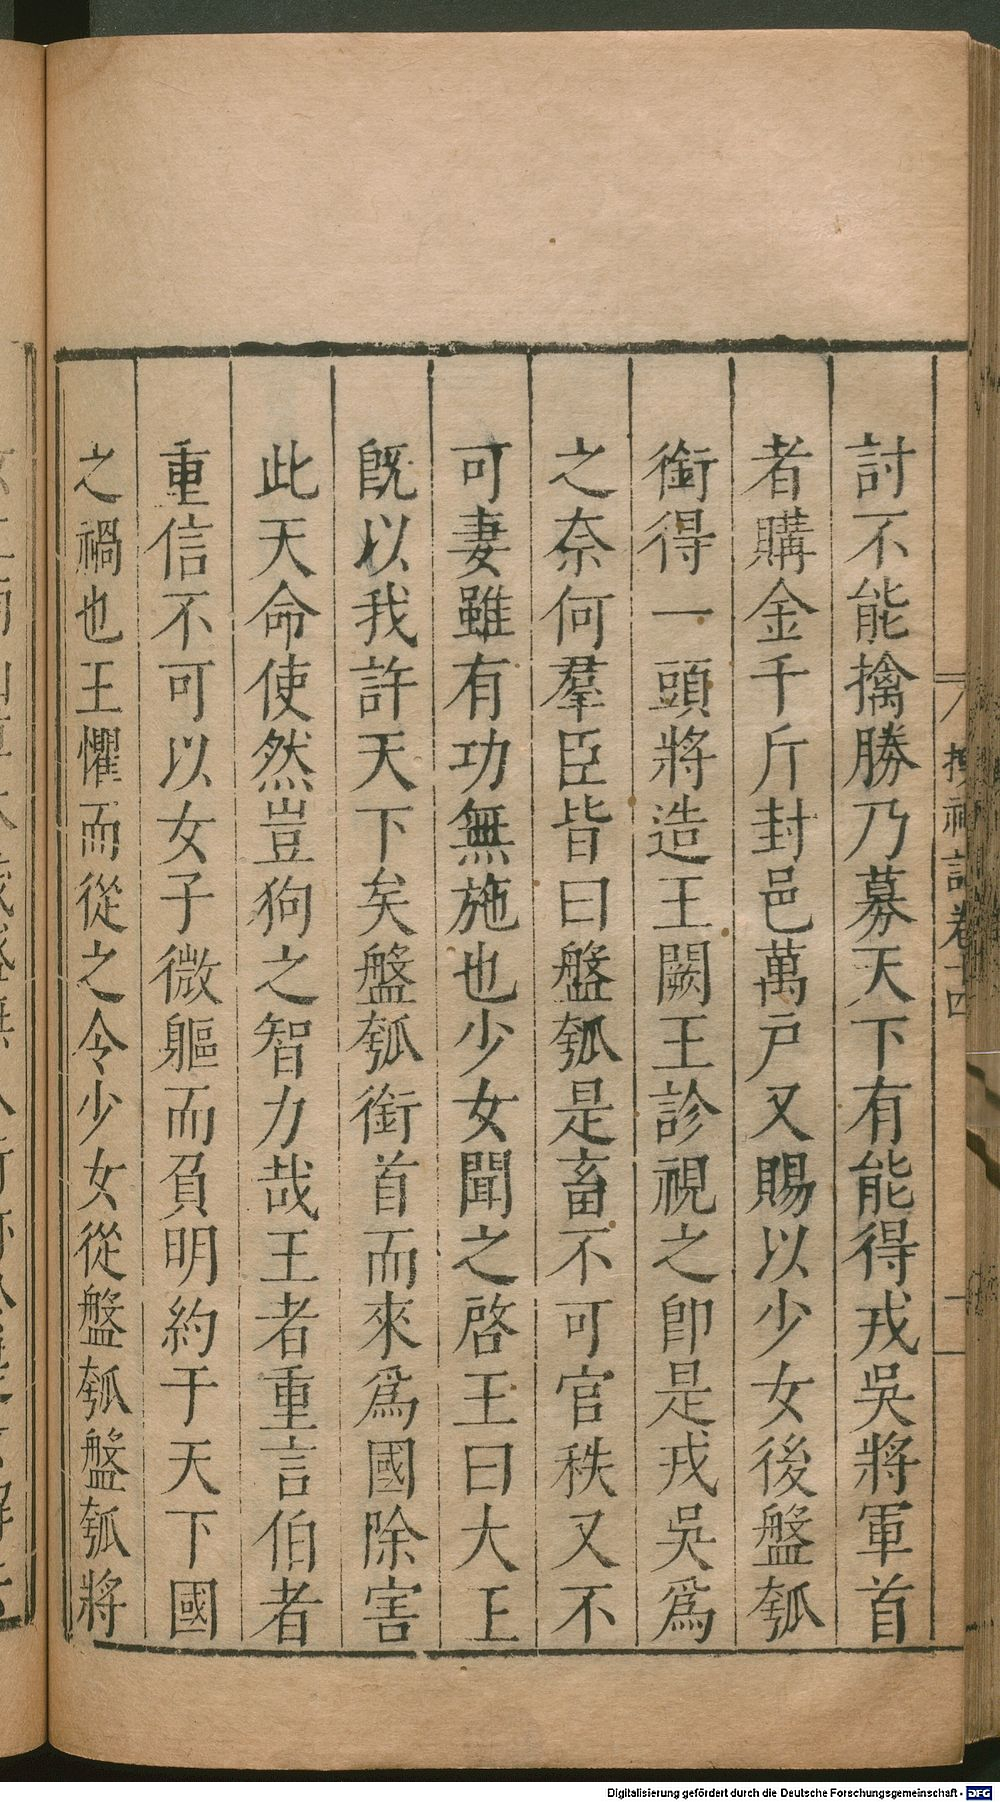 討不能擒勝乃募天下有能得戎吳將軍首
者購金千斤封邑萬戶又賜以少女後盤瓠
銜得一頭將造王闕王診視之卽是戎吳爲
之奈何羣臣皆曰盤瓠是畜不可官秩又不
可妻雖有功無施也少女聞之啓王曰大王
旣以我許天下矣盤瓠銜首而來爲國除害
此天命使然豈狗之智力哉王者重言伯者
重信不可以女子微軀而負明約于天下國
之禍也王懼而從之令少女從盤瓠盤瓠將
搜神記卷十四
Digitalisierung gefördert durch die Deutsche Forschungsgemeinschaft - DFG